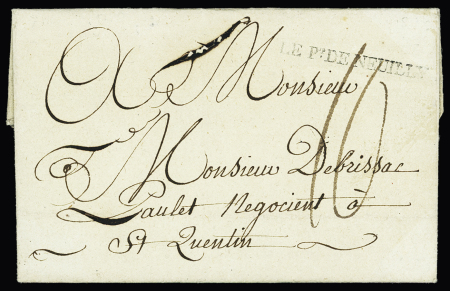 LE Pt DE NEUILLY
A Monsieur
16
Monsieur Debrissac
Paulet Negocient à
St Quentin